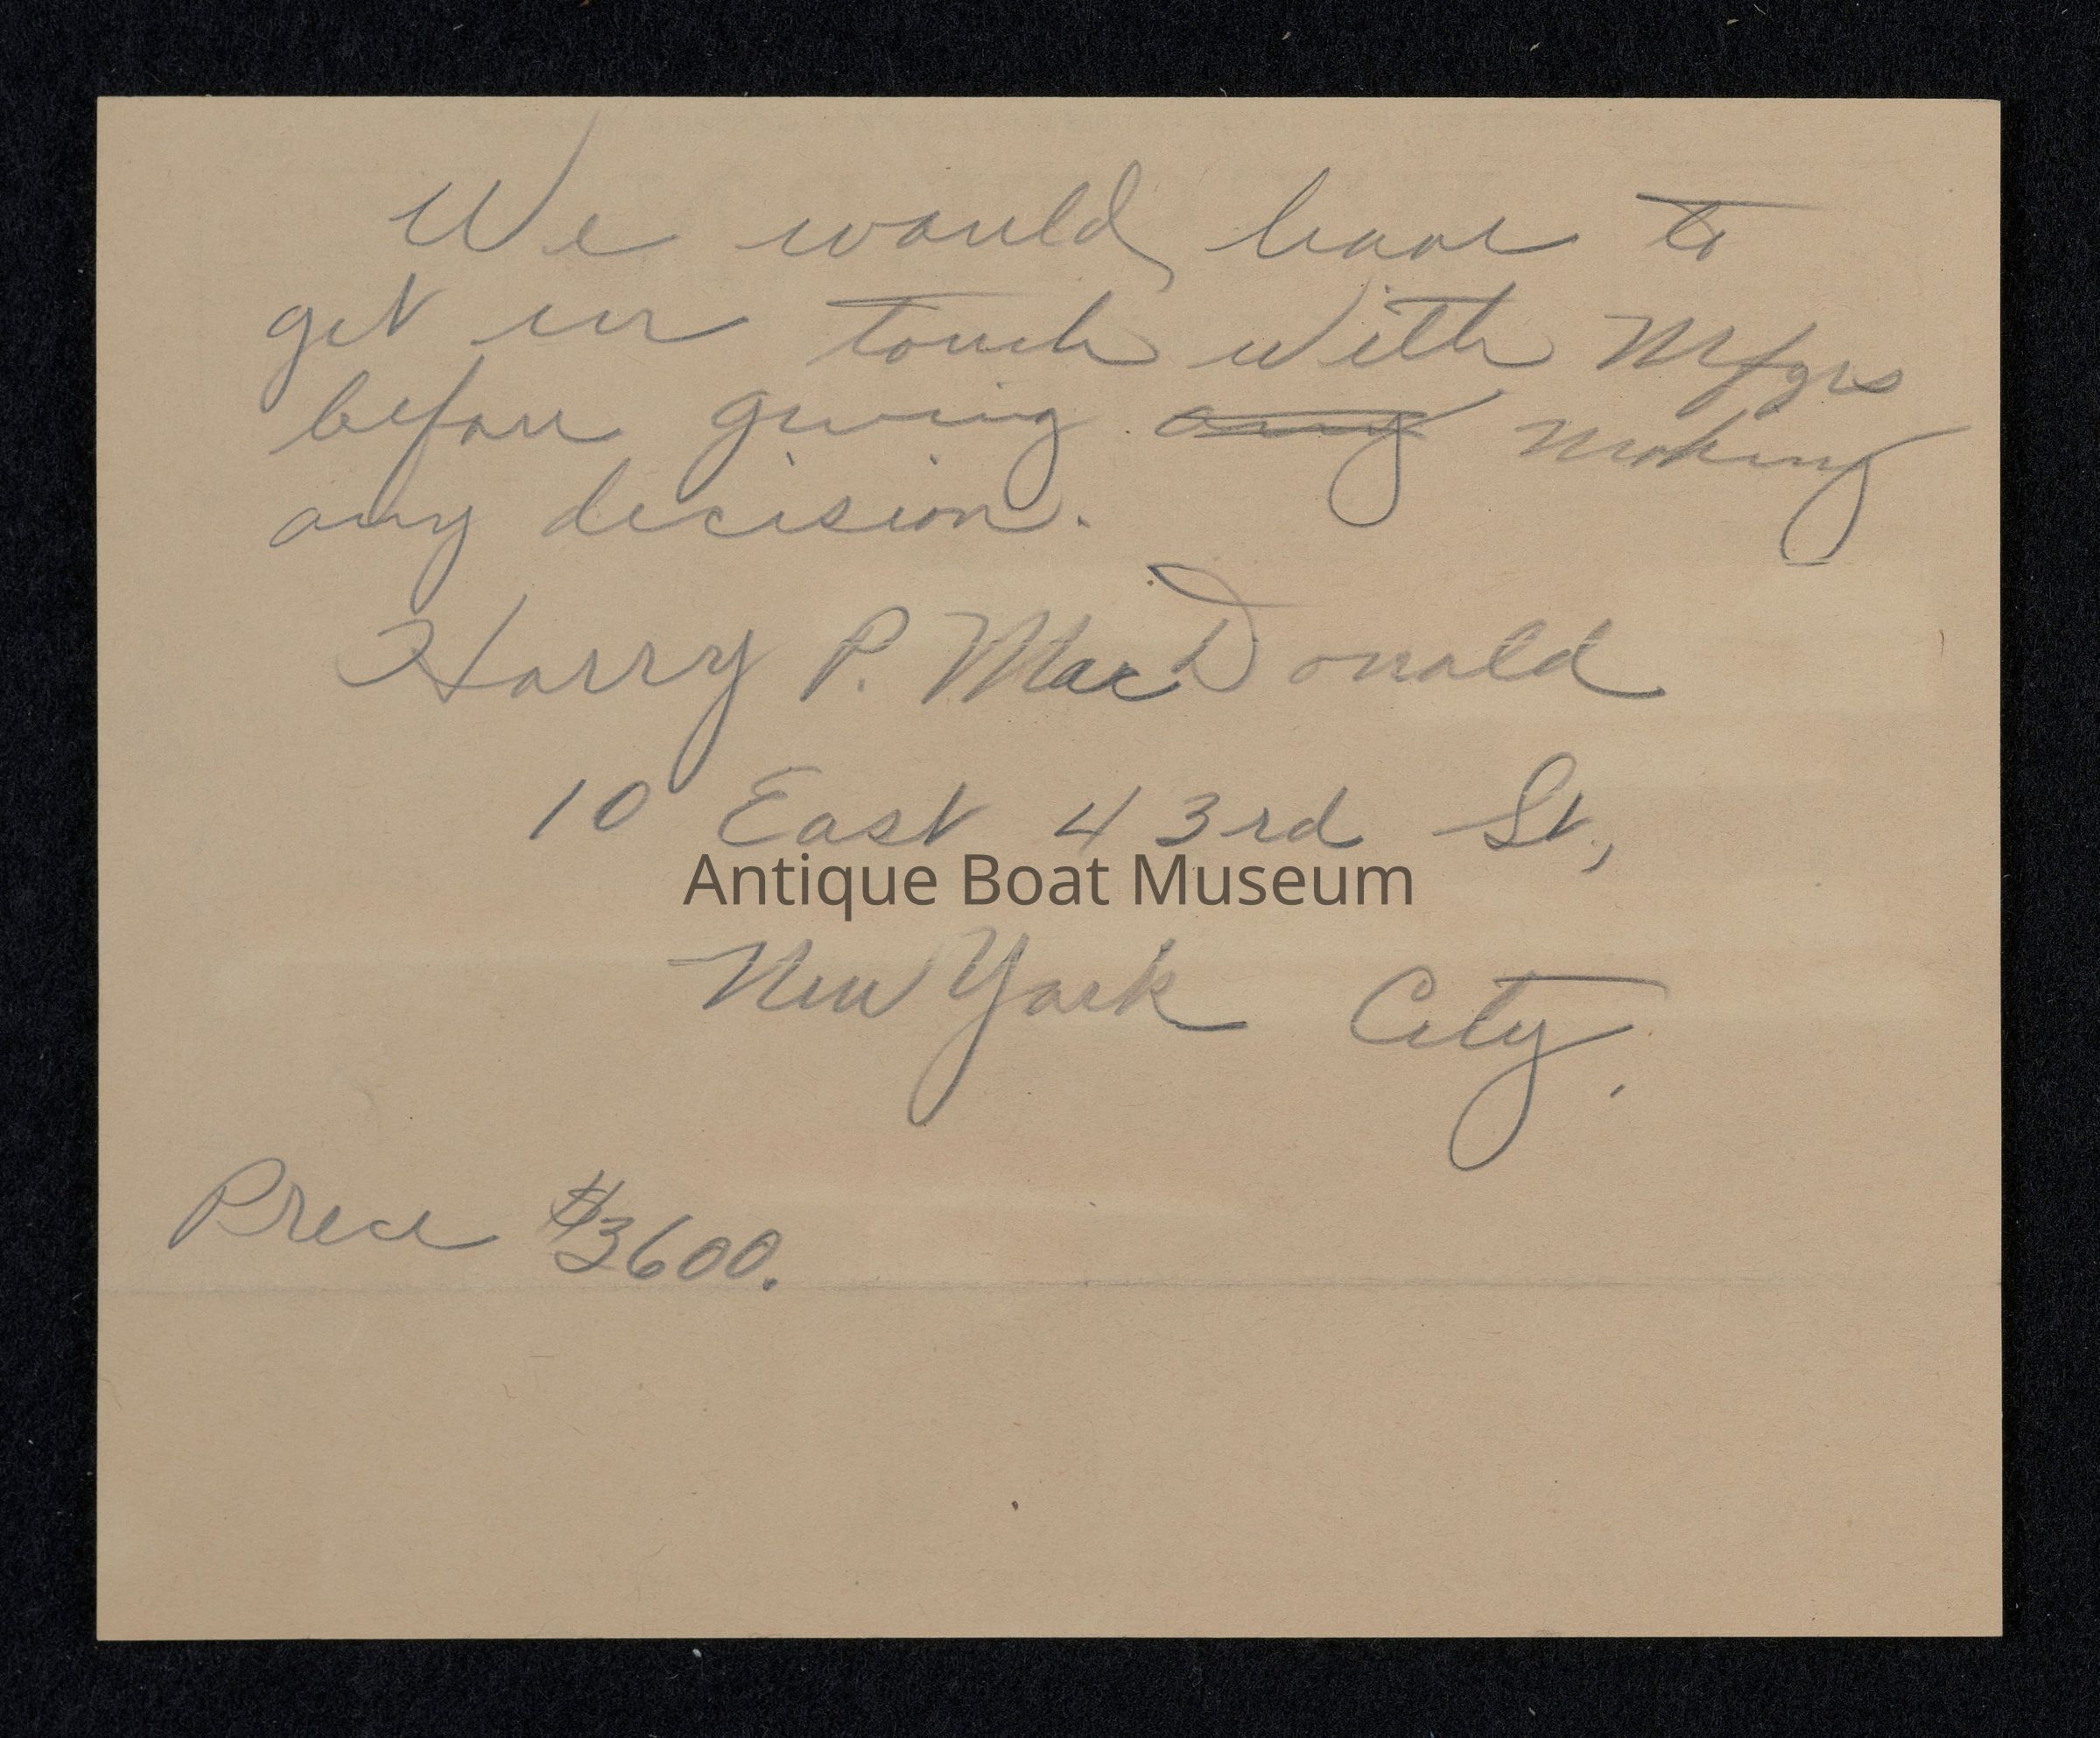 We would have to
get in touch with Mfgrs
before giving any making
any decision.
Harry P. MacDonald
10 East 43rd St.,
Antique Boat Museum
New York City.
Price $3600.